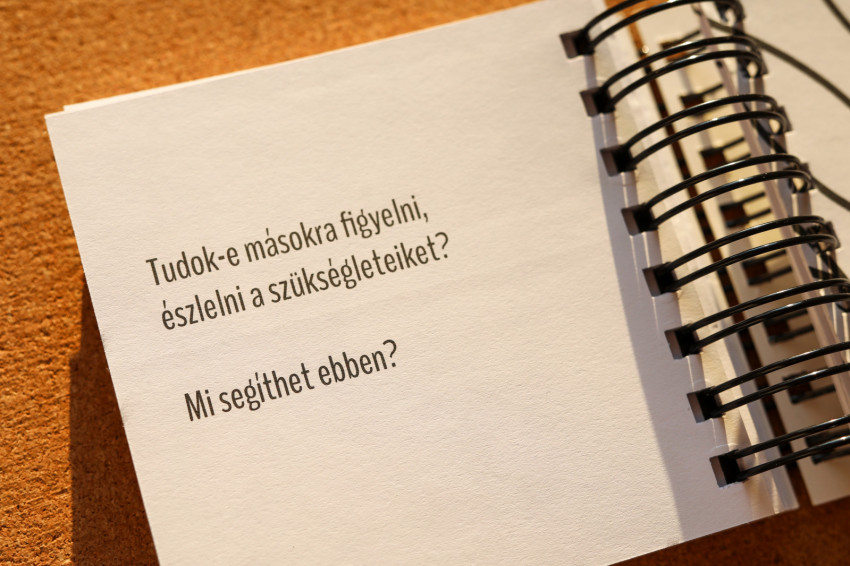 Tudok-e másokra figyelni,
észlelni a szükségleteiket?
Mi segíthet ebben?